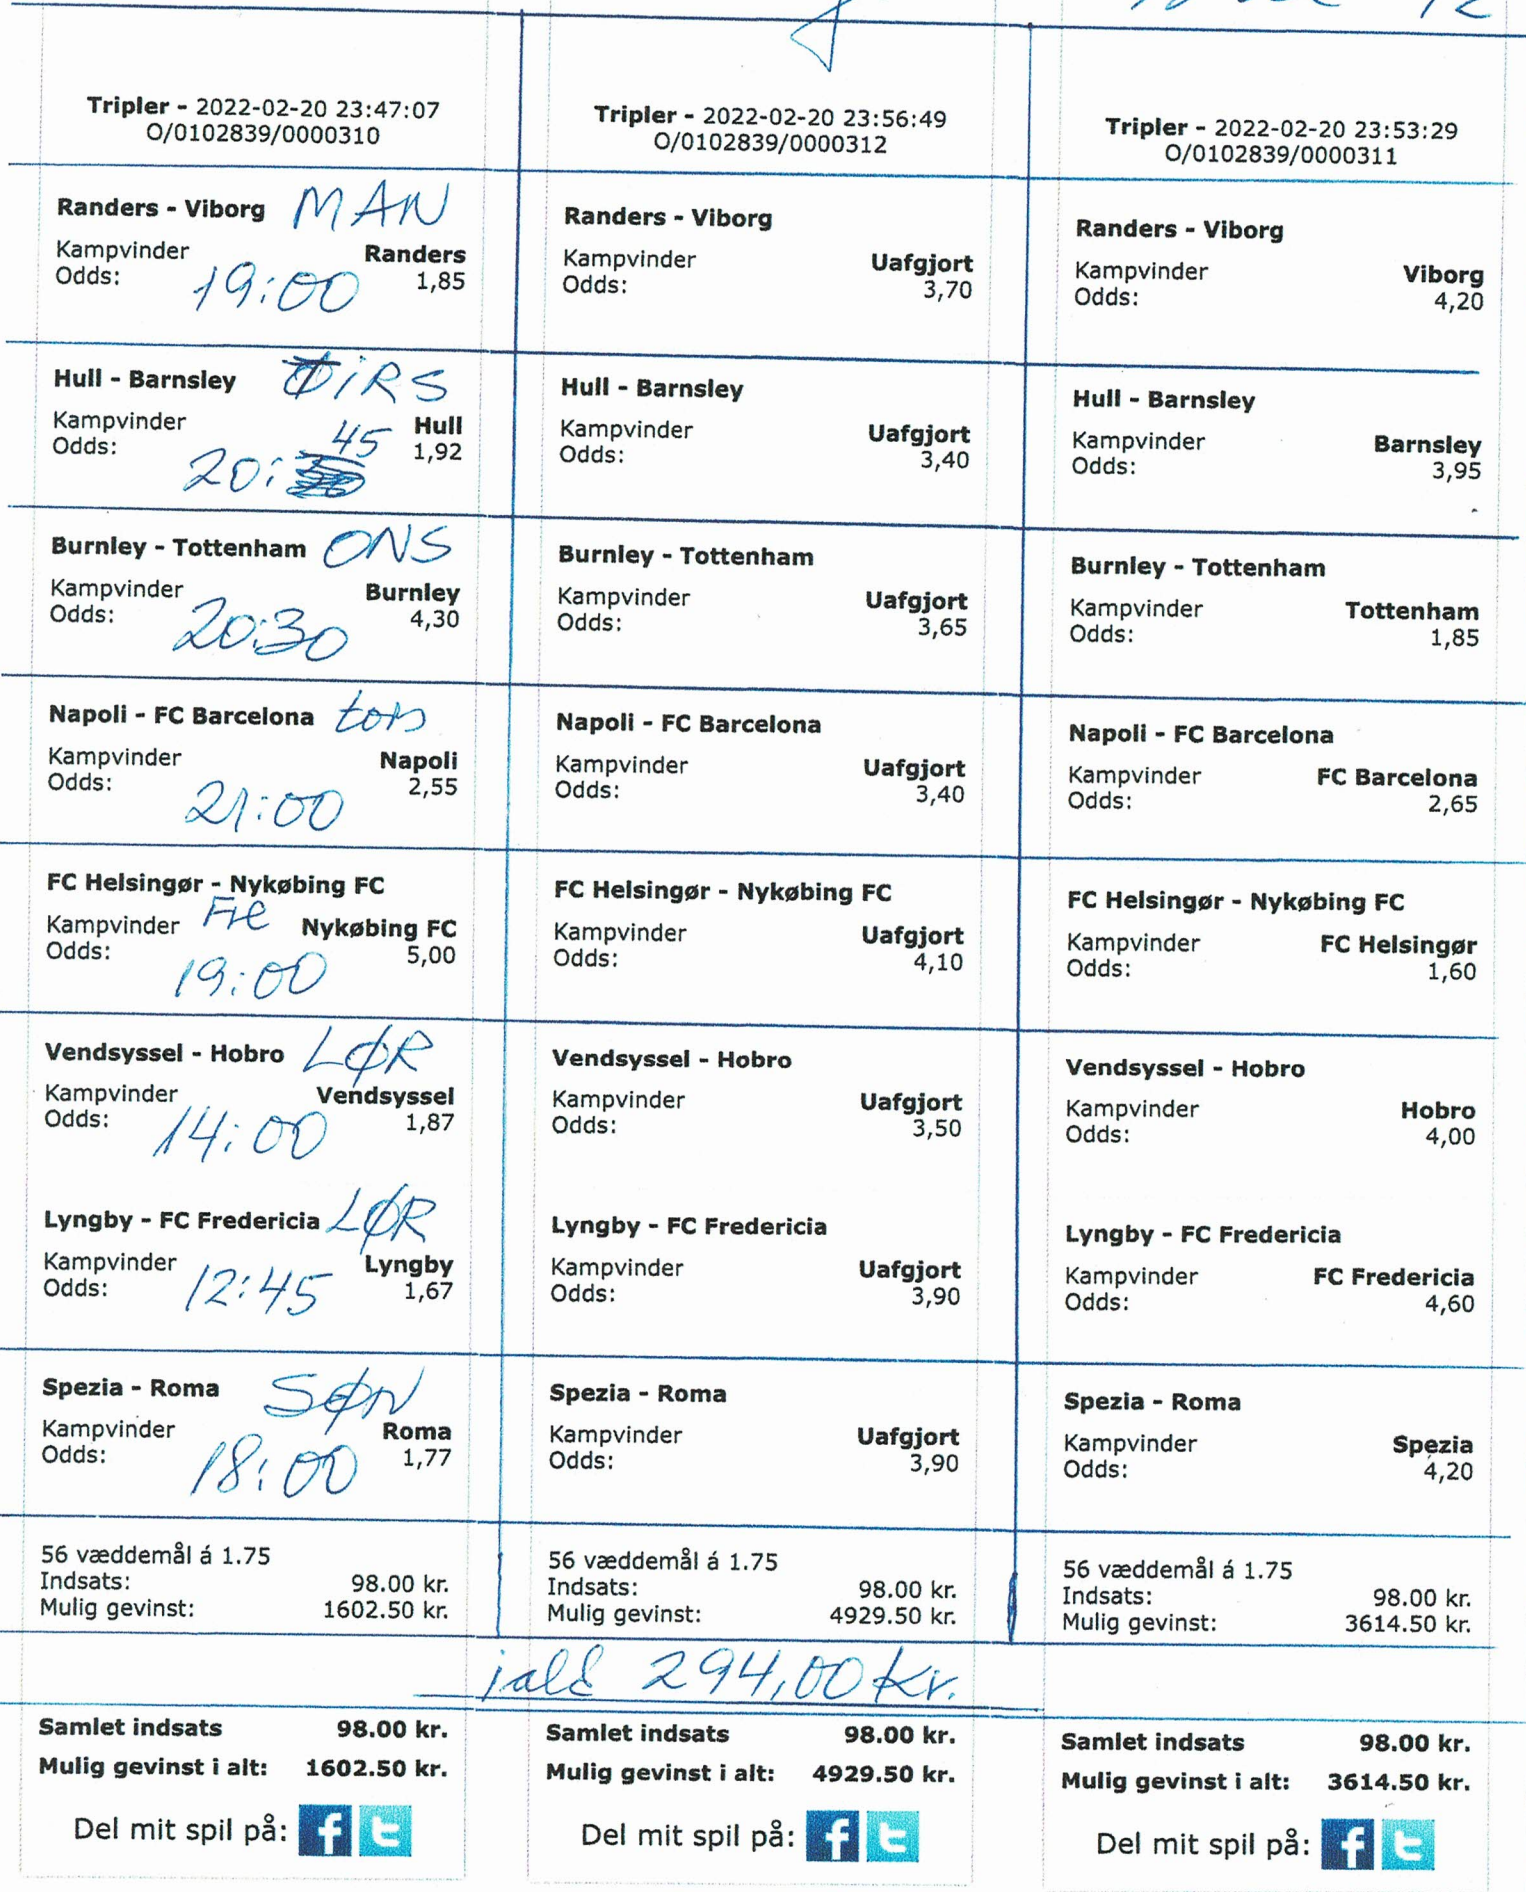 Tripler - 2022-02-20 23:47:07
O/0102839/0000310
Randers - Viborg MAN
Kampvinder Randers
Odds: 19:00 1,85
Hull - Barnsley TIRS
Kampvinder 45 Hull
Odds: 20: 1,92
Burnley - Tottenham ONS
Kampvinder Burnley
Odds: 20:30 4,30
Napoli - FC Barcelona tors
Kampvinder Napoli
Odds: 21:00 2,55
FC Helsingør - Nykøbing FC
Kampvinder Fre Nykøbing FC
Odds: 19:00 5,00
Vendsyssel - Hobro LØR
Kampvinder Vendsyssel
Odds: 14:00 1,87
Lyngby - FC Fredericia LØR
Kampvinder Lyngby
Odds: 12:45 1,67
Spezia - Roma SØN
Kampvinder Roma
Odds: 18:00 1,77
56 væddemål á 1.75
Indsats: 98.00 kr.
Mulig gevinst: 1602.50 kr.
Samlet indsats 98.00 kr.
Mulig gevinst i alt: 1602.50 kr.
Del mit spil på: f t
Tripler - 2022-02-20 23:56:49
O/0102839/0000312
Randers - Viborg
Kampvinder Uafgjort
Odds: 3,70
Hull - Barnsley
Kampvinder Uafgjort
Odds: 3,40
Burnley - Tottenham
Kampvinder Uafgjort
Odds: 3,65
Napoli - FC Barcelona
Kampvinder Uafgjort
Odds: 3,40
FC Helsingør - Nykøbing FC
Kampvinder Uafgjort
Odds: 4,10
Vendsyssel - Hobro
Kampvinder Uafgjort
Odds: 3,50
Lyngby - FC Fredericia
Kampvinder Uafgjort
Odds: 3,90
Spezia - Roma
Kampvinder Uafgjort
Odds: 3,90
56 væddemål á 1.75
Indsats: 98.00 kr.
Mulig gevinst: 4929.50 kr.
ialt 294,00 kr.
Samlet indsats 98.00 kr.
Mulig gevinst i alt: 4929.50 kr.
Del mit spil på: f t
Tripler - 2022-02-20 23:53:29
O/0102839/0000311
Randers - Viborg
Kampvinder Viborg
Odds: 4,20
Hull - Barnsley
Kampvinder Barnsley
Odds: 3,95
Burnley - Tottenham
Kampvinder Tottenham
Odds: 1,85
Napoli - FC Barcelona
Kampvinder FC Barcelona
Odds: 2,65
FC Helsingør - Nykøbing FC
Kampvinder FC Helsingør
Odds: 1,60
Vendsyssel - Hobro
Kampvinder Hobro
Odds: 4,00
Lyngby - FC Fredericia
Kampvinder FC Fredericia
Odds: 4,60
Spezia - Roma
Kampvinder Spezia
Odds: 4,20
56 væddemål á 1.75
Indsats: 98.00 kr.
Mulig gevinst: 3614.50 kr.
Samlet indsats 98.00 kr.
Mulig gevinst i alt: 3614.50 kr.
Del mit spil på: f t